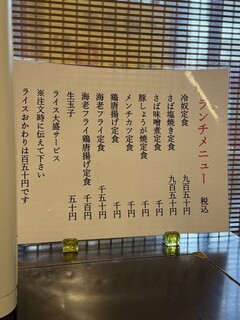 ランチメニュー　税込
冷奴定食　九百五十円
さば塩焼き定食　九百五十円
さば味噌煮定食　千円
豚しょうが焼定食　千円
メンチカツ定食　千円
鶏唐揚げ定食　千円
海老フライ定食　千五十円
海老フライ鶏唐揚げ定食　千百円
生玉子　五十円
ライス大盛サービス
※注文時に伝えて下さい
ライスおかわりは百五十円です